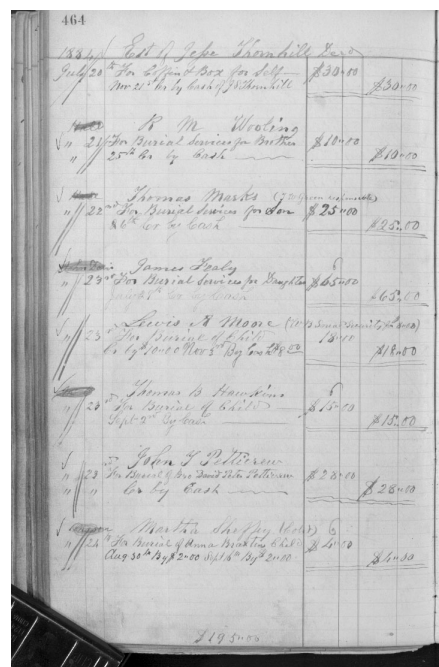 464
1884 Est of Jesse Thornhill Decd
July 20 th For Coffin & Box for Self $30.00
Nov 21st Cr by Cash of J Thornhill $30.00
R. M. Wooling
" 21 st For Burial Services for Brother $10.00
25th Cr by Cash $10.00
Thomas Marks
" 22 nd For Burial Services for Son $25.00
Cr by Cash $25.00
James Fealy
" 23 rd For Burial Services for Daughter $65.00
Cr by Cash $65.00
Lewis A Moore
" 23 For Burial of Child 18.00
Cr by $10.00 Nov 3rd By Cash $8.00 $18.00
Thomas B Hawkins
" 23 For Burial of Child $15.00
Sept 3rd By Cash $15.00
John T Petticrew
" 23 For Burial of Mrs David Peter Petticrew $28.00
" " Cr by Cash $28.00
Martha
" 24 th For Burial of Anna Braxton Child $4.00
Aug 30th By $2.00 Sept 16th By $2.00 $4.00
$195.00